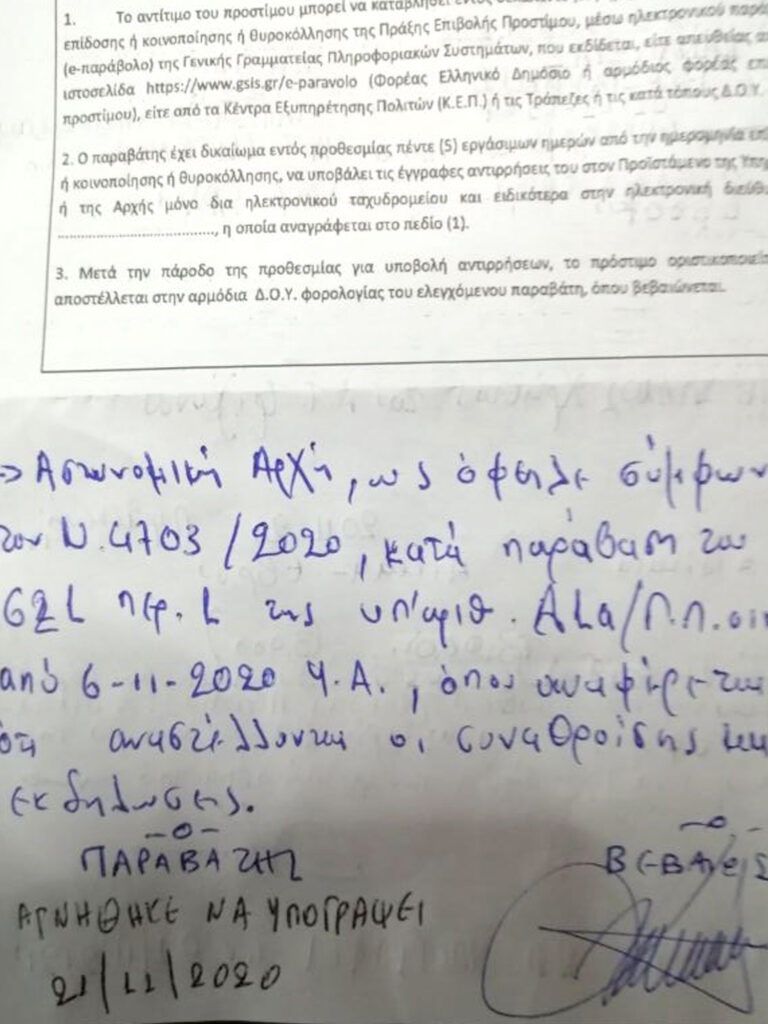 1. Το αντίτιμο του προστίμου μπορεί να καταβληθεί εντός
επίδοσης ή κοινοποίησης ή θυροκόλλησης της Πράξης Επιβολής Προστίμου, μέσω ηλεκτρονικού
(e-παράβολο) της Γενικής Γραμματείας Πληροφοριακών Συστημάτων, που εκδίδεται, είτε απευθείας
ιστοσελίδα https://www.gsis.gr/e-paravolo (Φορέας Ελληνικό Δημόσιο ή αρμόδιος φορέας
προστίμου), είτε από τα Κέντρα Εξυπηρέτησης Πολιτών (Κ.Ε.Π.) ή τις Τράπεζες ή τις κατά τόπους Δ.Ο.Υ.
2. Ο παραβάτης έχει δικαίωμα εντός προθεσμίας πέντε (5) εργάσιμων ημερών από την ημερομηνία
ή κοινοποίησης ή θυροκόλλησης, να υποβάλει τις έγγραφες αντιρρήσεις του στον Προϊστάμενο της
ή της Αρχής μόνο δια ηλεκτρονικού ταχυδρομείου και ειδικότερα στην ηλεκτρονική
......................................, η οποία αναγράφεται στο πεδίο (1).
3. Μετά την πάροδο της προθεσμίας για υποβολή αντιρρήσεων, το πρόστιμο οριστικοποιεί
αποστέλλεται στην αρμόδια Δ.Ο.Υ. φορολογίας του ελεγχόμενου παραβάτη, όπου βεβαιώνεται.
-> Αστυνομική Αρχή, ως όφειλε σύμφων
τον Ν.4703/2020, κατά παράβαση του
περ. 1 της υπ'αριθ. Δ1α/Γ.Π.οι
από 6-11-2020 Υ.Α., όπου αναφέρεται
ότι αναστέλλονται οι συναθροίσης και
εκδηλώσεις.
-ο-
-ο-
ΠΑΡΑΒΑΤΗΣ
ΑΡΝΗΘΗΚΕ ΝΑ ΥΠΟΓΡΑΨΕΙ
21/11/2020